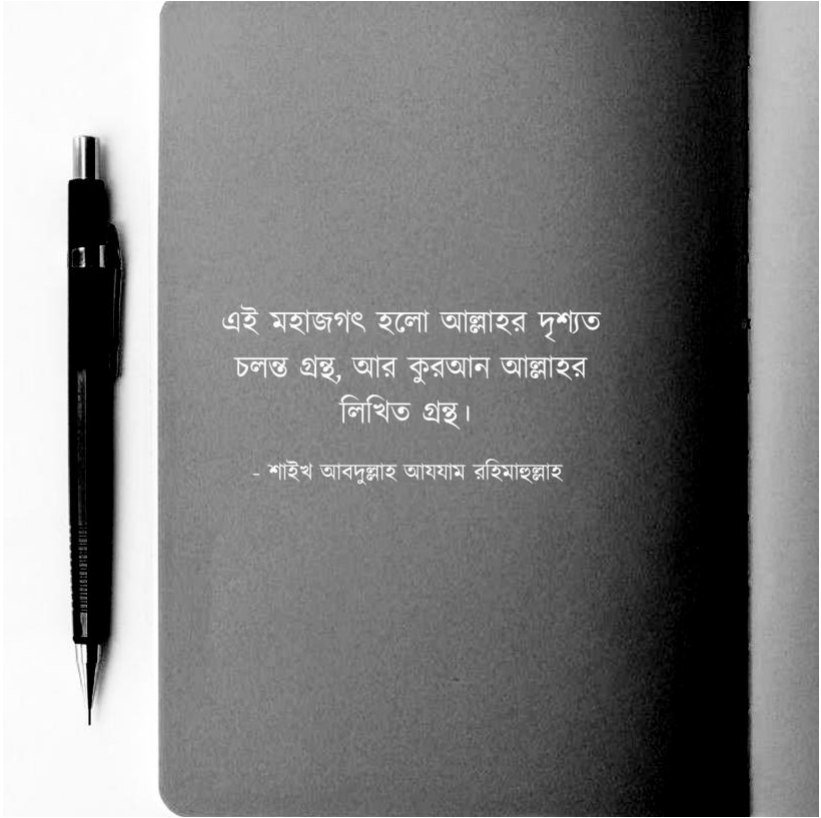 এই মহাজগৎ হলো আল্লাহর দৃশ্যত
চলন্ত গ্রন্থ, আর কুরআন আল্লাহর
লিখিত গ্রন্থ।
- শাইখ আবদুল্লাহ আযযাম রহিমাহুল্লাহ